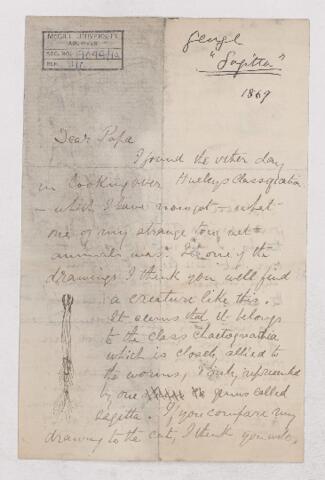 McGILL UNIVERSITY
ARCHIVES
ACC. NO.
REF.
"Sagitta"
1869
Dear Papa
I found the other day
in looking over Huxleys Classification
- which I have now got - what
one of my strange tow net
animals was. In one of the
drawings I think you will find
a creature like this.
It seems that it belongs
to the class chaetognatha
which is closely allied to
the worms, & only represented
by one genus called
sagitta. If you compare my
drawing to the cut, I think you will